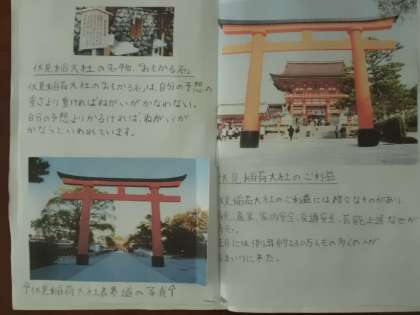 伏見稲荷大社の名物、「おもかる石」
伏見稲荷大社のおもかる石は、自分の予想の
重さより重ければねがいがかなわない。
自分の予想よりかるければ、ねがいが
かなうといわれています。
↑伏見稲荷大社表参道の写真↑
伏見稲荷大社のご利益
伏見稲荷大社のご利益には様々なものがあり、
農業、家内安全、交通安全、芸能上達などが
正月には例年約230万人もの多くの人が
まいりに来た。